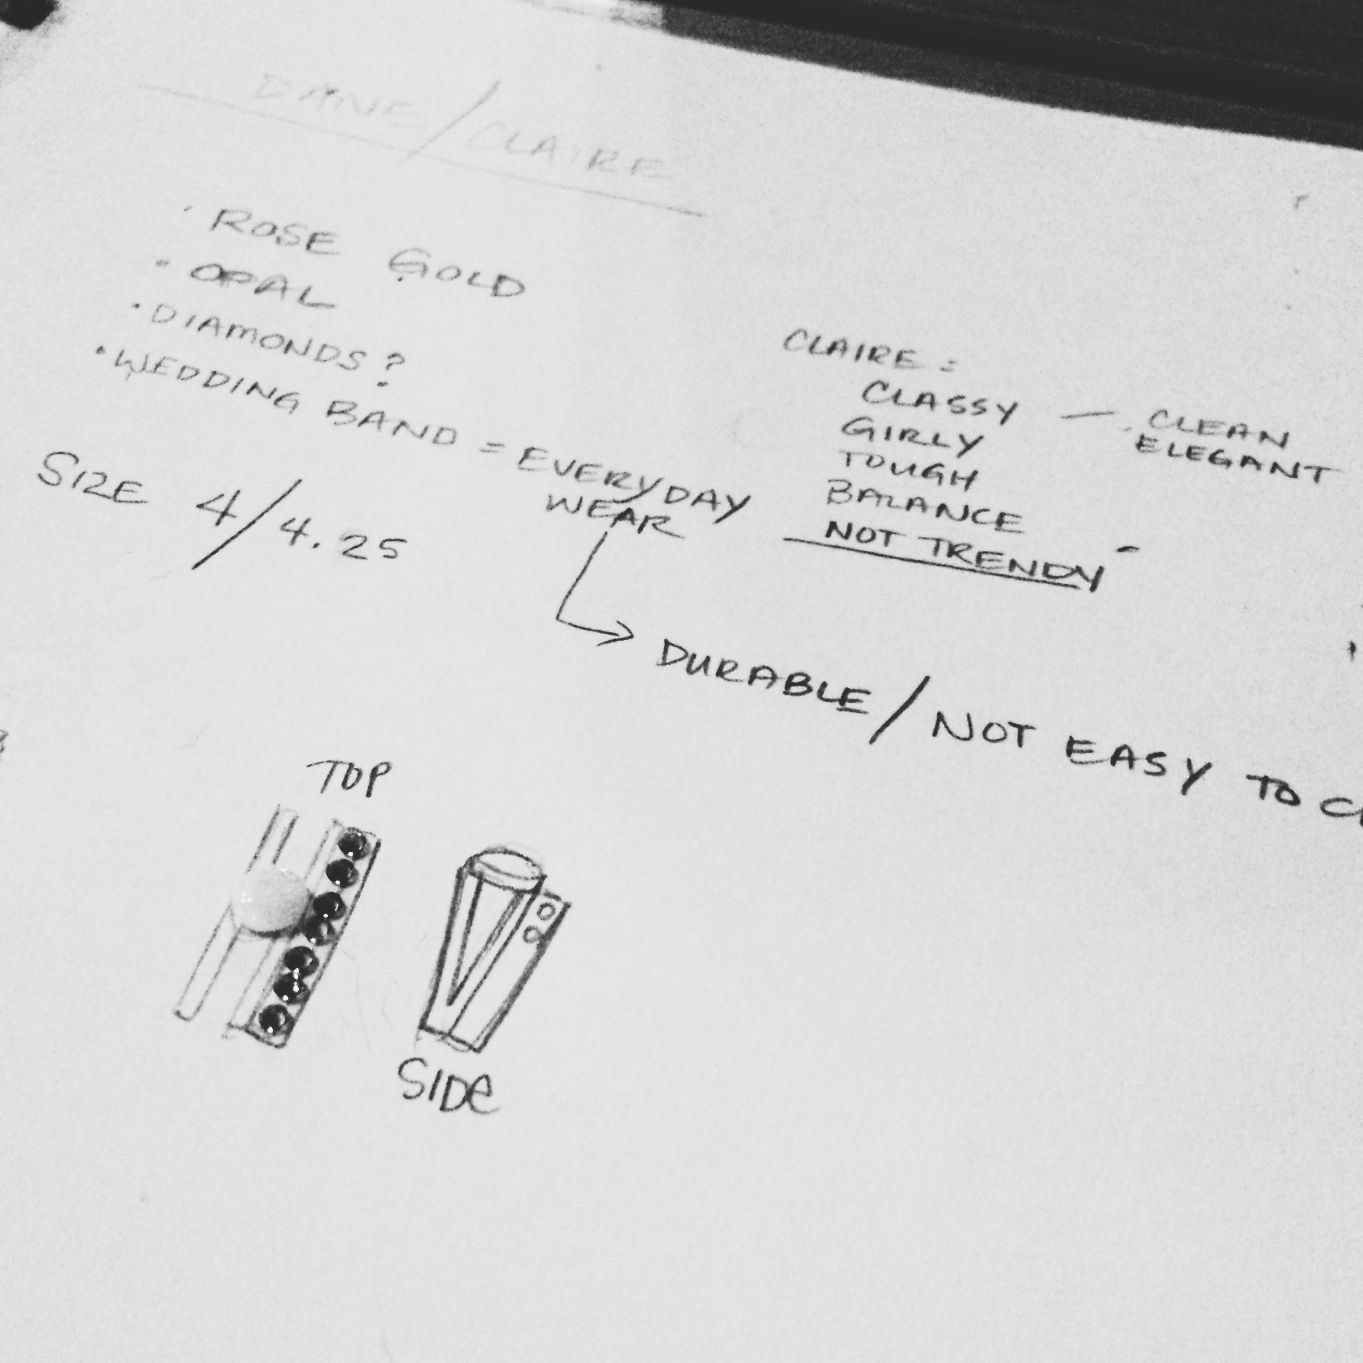 DANE/CLAIRE
· ROSE GOLD
· OPAL
· DIAMONDS?
· WEDDING BAND = EVERYDAY
WEAR
SIZE 4/4.25
CLAIRE:
CLASSY — CLEAN
ELEGANT
GIRLY
TOUGH
BALANCE
NOT TRENDY
DURABLE/NOT EASY TO
TOP
SIDE